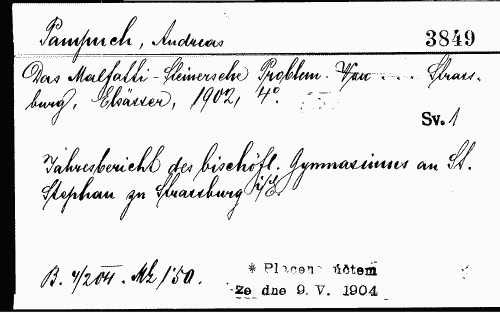 Pampuch, Andreas 3849
Das Malfatti-Steinersche Problem. Von ... Strass-
burg, Elsässer, 1902, 4°.
Sv. 1
Jahresbericht des bischöfl. Gymnasiums an St.
Stephan zu Strassburg i/E.
B. Mk 1·50.
* Placeno účtem
ze dne 9. V. 1904